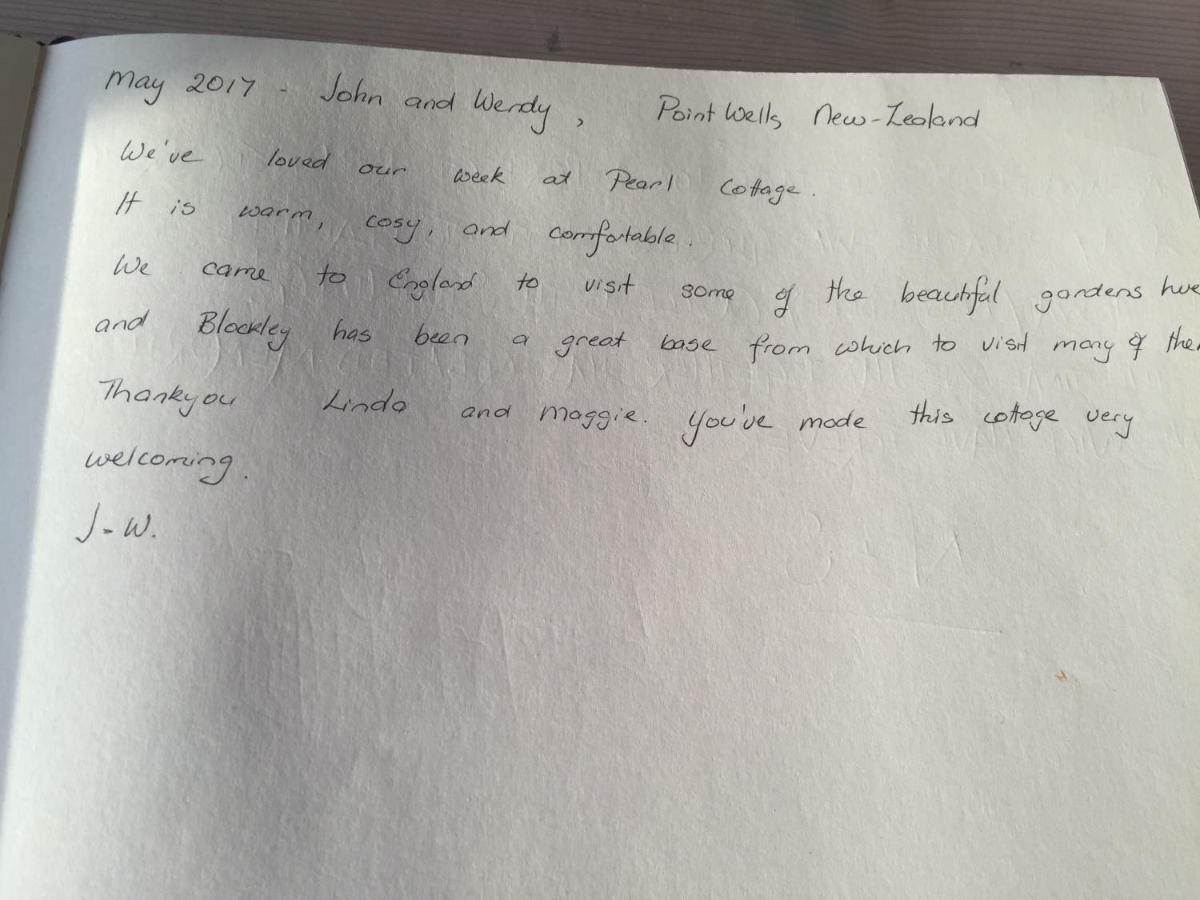 May 2017 - John and Wendy, Point Wells, New-Zealand
We've loved our week at Pearl Cottage.
It is warm, cosy, and comfortable.
We came to England to visit some of the beautiful gardens
and Blockley has been a great base from which to visit many of
Thankyou Linda and Maggie. You've made this cottage very
welcoming.
J-W.